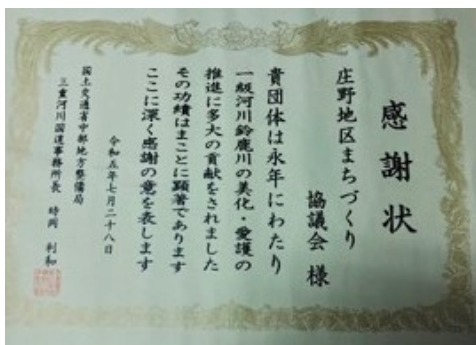 感謝状
庄野地区まちづくり
協議会 様
貴団体は永年にわたり
一級河川鈴鹿川の美化・愛護の
推進に多大の貢献をされました
その功績はまことに顕著であります
ここに深く感謝の意を表します
令和五年七月二十八日
国土交通省中部地方整備局
三重河川国道事務所長 時岡 利和